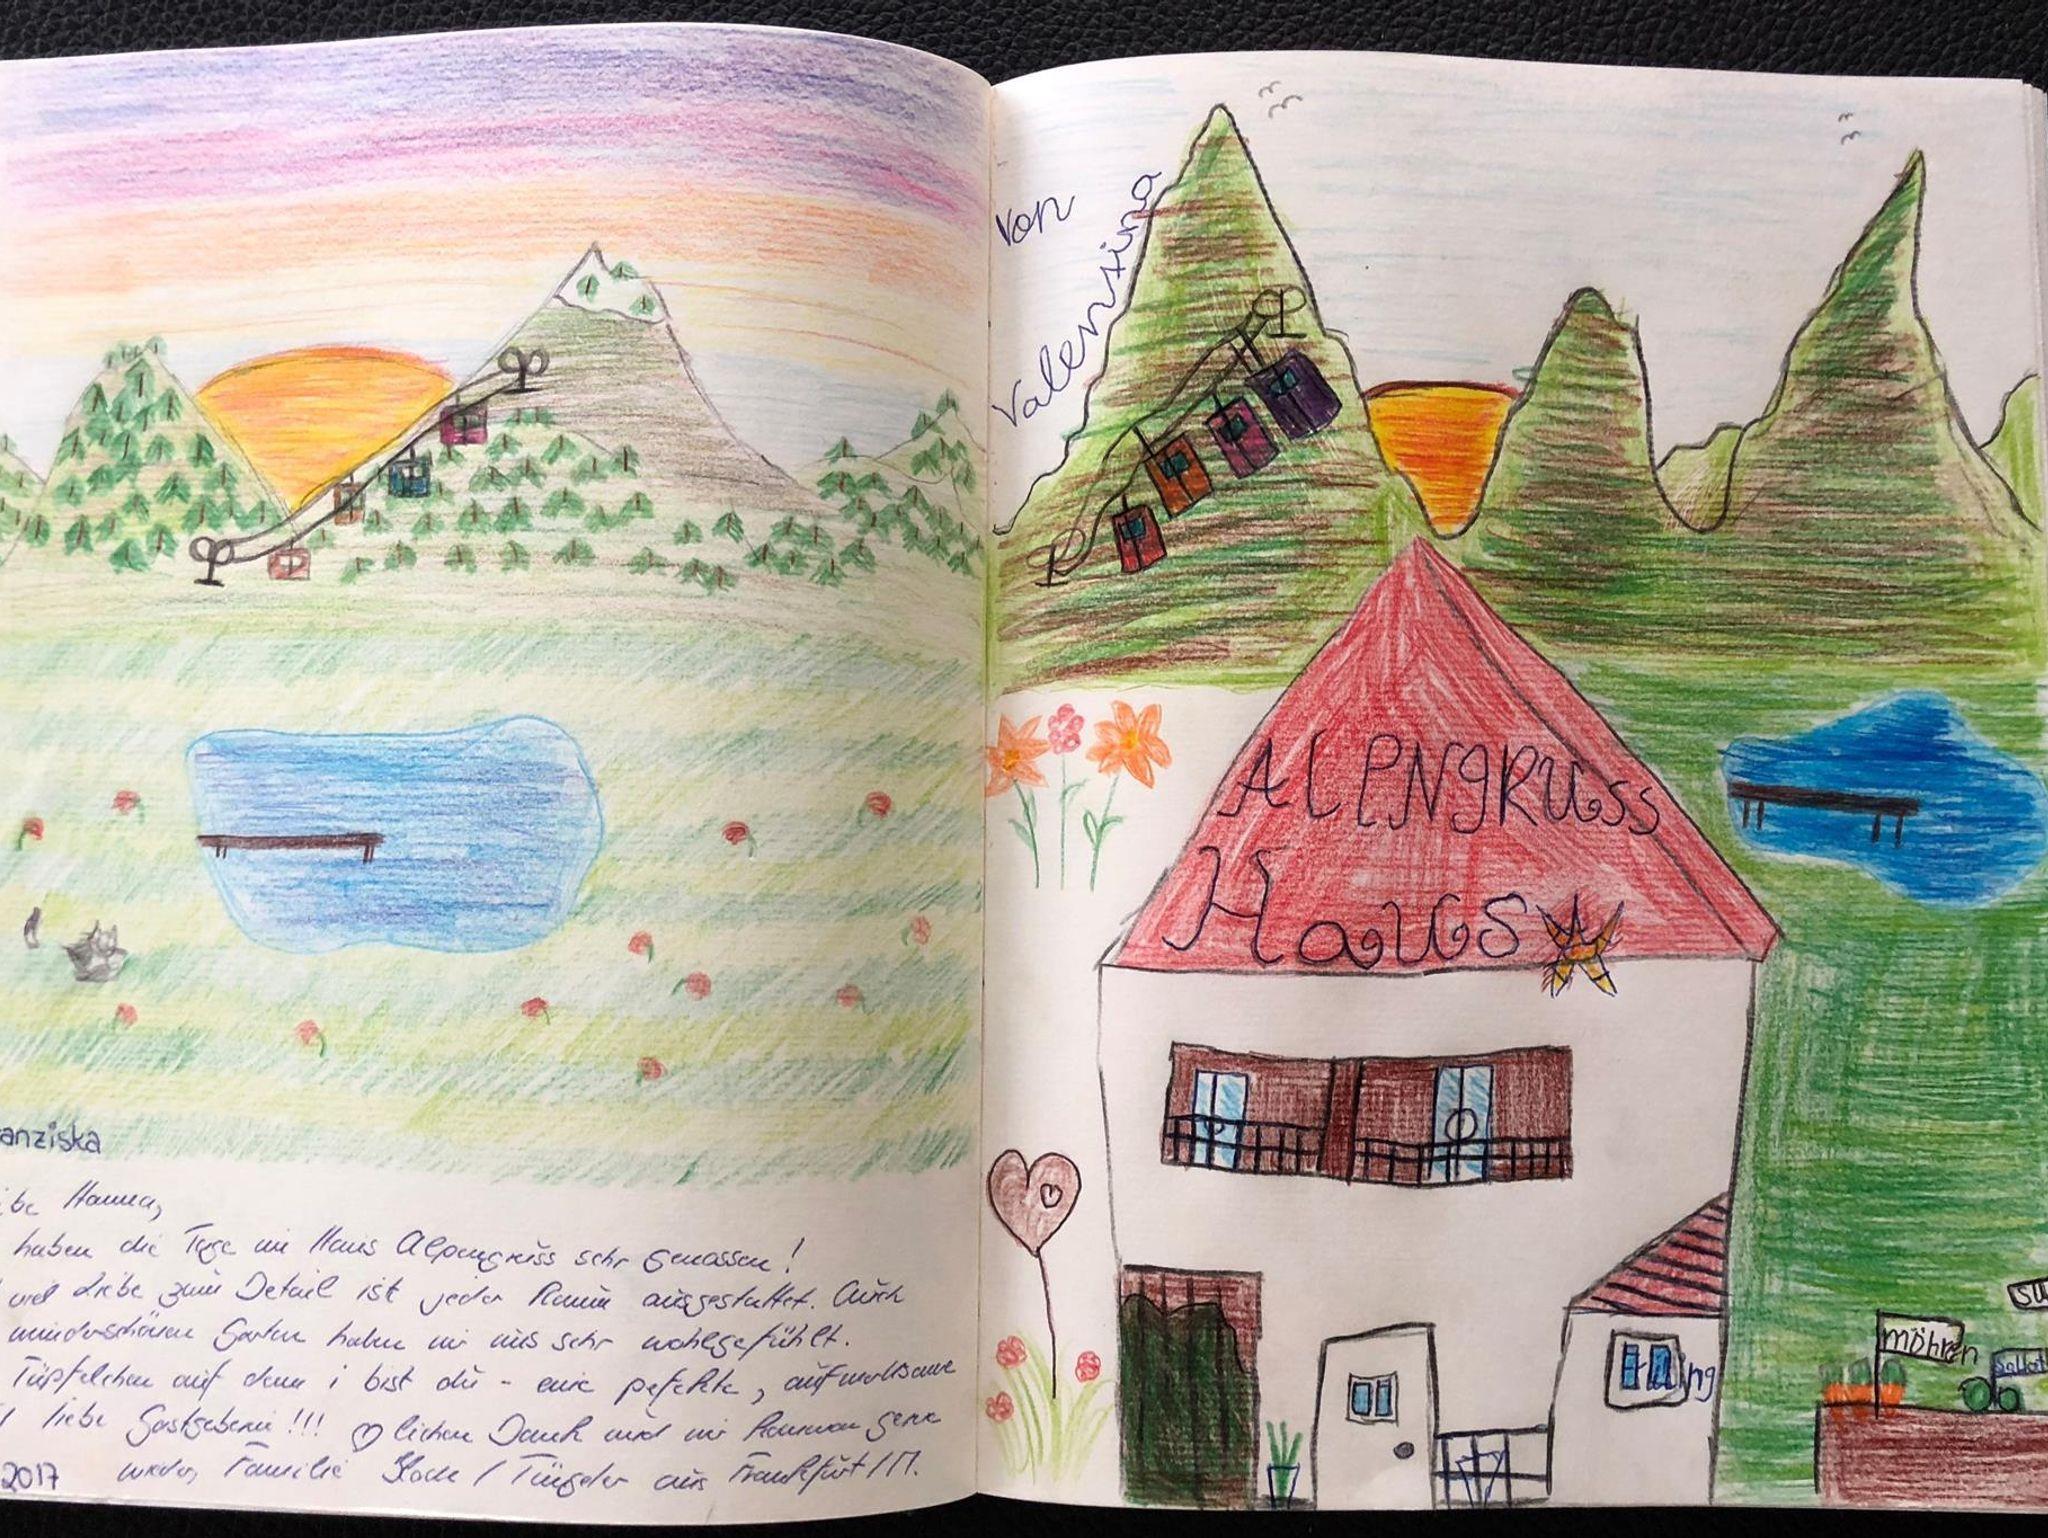 anziska
ibe Hanna,
haben die Tage im Haus Alpengruss sehr genossen!
viel Liebe zum Detail ist jeder Raum ausgestattet. Auch
wunderschönen Garten haben wir uns sehr wohlgefühlt.
Tüpfelchen auf dem i bist du - eine perfekte, aufmerksame
liebe Gastgeberin!!! ♡lichen Dank und wir kommen gerne
2017 wieder, Familie / aus Frankfurt/M.
Von
Valenzina
ALPENGRUSS
Haus
möhren
Sallat
SU